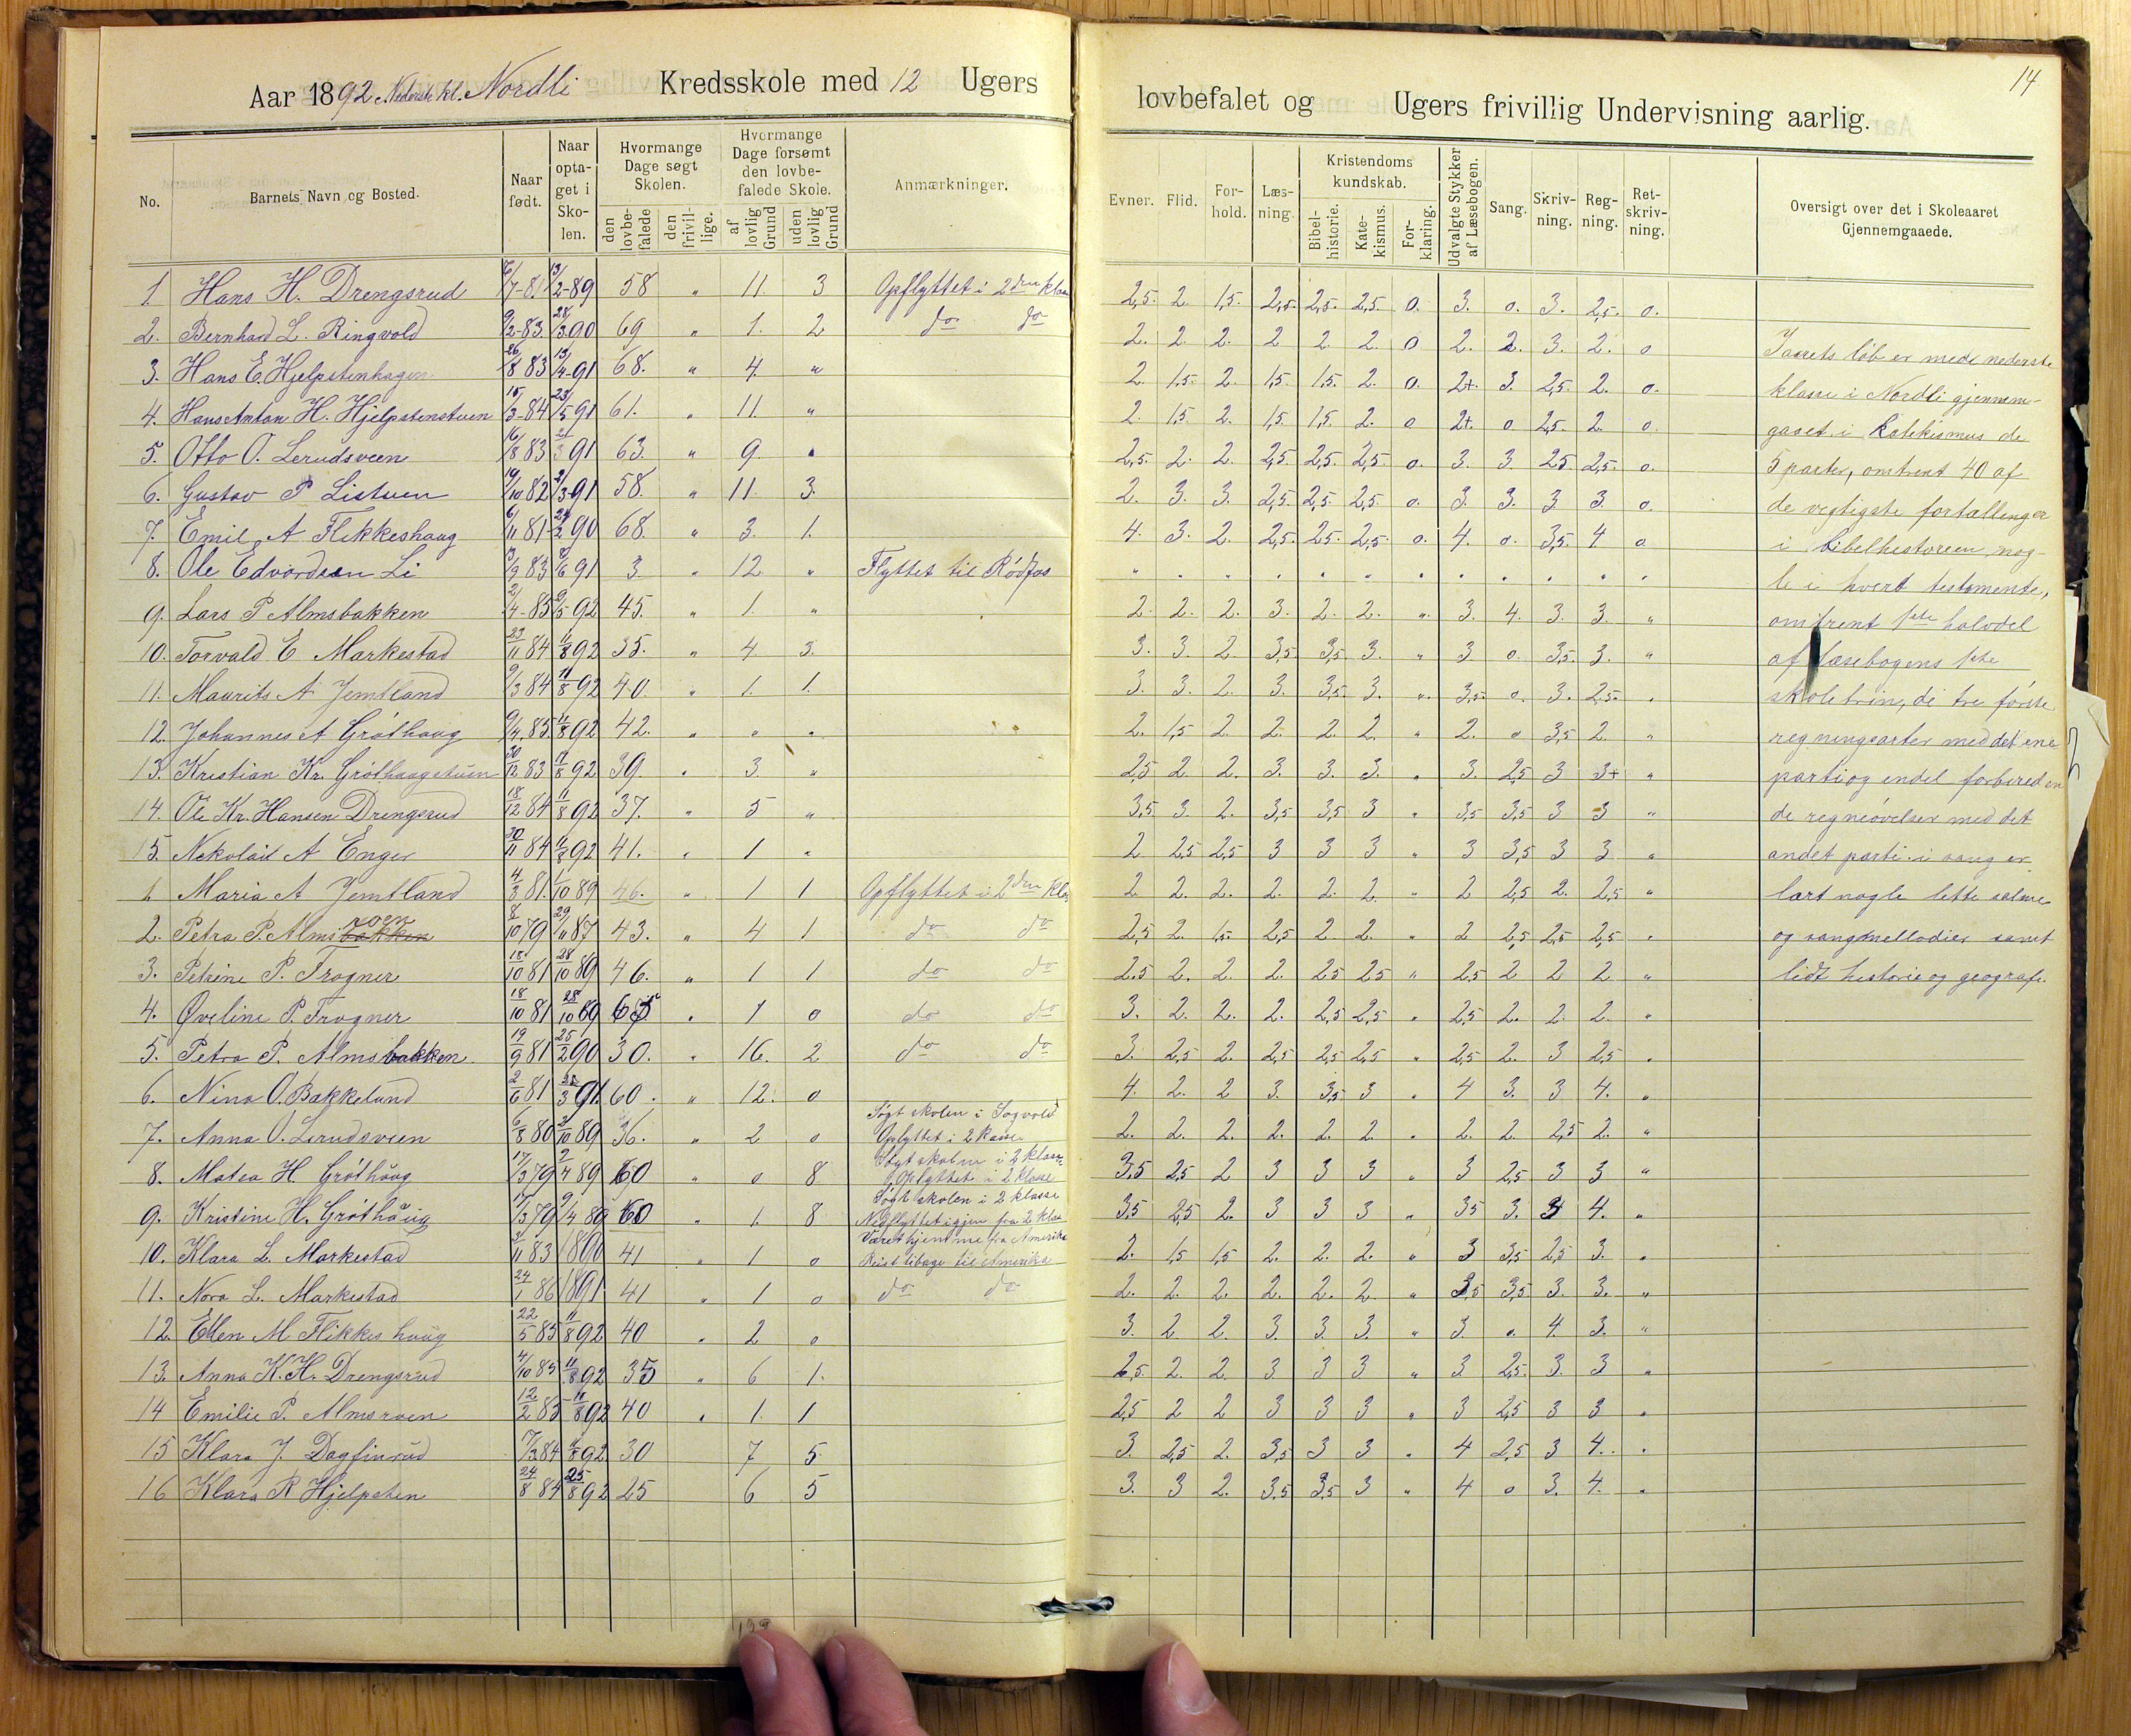 Aar 1892 Nederste kl. Nordli Kredsskole med 12 Ugers
No. Barnets Navn og Bosted. Naar født. Naar optaget i Skolen. Hvormange Dage søgt Skolen. den lovbefalede den frivillige. Hvormange Dage forsømt den lovbefalede Skole. af lovlig Grund uden lovlig Grund Anmærkninger.
1 Hans H. Drengsrud 6/7-81 13/2-89 58 " 11. 3 Opflyttet i 2den klas
2. Bernhard L. Ringvold 9/2-83 28/3 90 69 " 1. 2 do do
3. Hans E. Hjelpstenhagen 26/8 83 13/4-91 68. " 4. "
4. Hans Anton H. Hjelpstenstuen 15/3-84 23/5 91 61. " 11. "
5. Otto O. Lerudsveen 16/8 83 21/3 91 63. " 9. "
6. Gustav P Listuen 19/10 82 2/3-91 58. " 11. 3.
7. Emil A Flikkeshaug 6/11 81 24/2 90 68. " 3. 1.
8. Ole Edvardsen Li 13/9 83 8/6 91 3. " 12 " Flyttet til Rödfos
9. Lars P Almsbakken 2/4-85 9/5 92 45. " 1. "
10. Torvald E Markestad 23/11 84 11/8 92 35. " 4 3.
11. Maurits A Jemtland 9/3 84 11/8 92 40. " 1. 1.
12. Johannes A Gróthaug 9/4. 85. 11/8 92 42. " " "
13. Kristian Kr. Gróthaugstuen 30/12 83 11/8 92 39. " 3. "
14. Ole Kr. Hansen Drengsrud 18/12 84 11/8 92 37. " 5 "
15. Nekolai A Enger 30/11 84 11/8 92 41. " 1 "
1 Maria A Jemtland 4/3 81. 1/10 89 46. " 1 1 Opflyttet i 2den klas
2. Petra P. Almsroen 8/10 79 29/11 87 43. " 4 1 do do
3. Petrine P. Frogner 18/10 81 28/10 89 46. " 1 1 do do
4. Oveline P. Frogner 18/10 81 28/10 89 " 1 0 do do
5. Petra P. Almsbakken. 19/9 81 25/2 90 30. " 16. 2 do do
6. Nina O. Bakkelund 2/6 81 3 91. 60. " 12. 0
7. Anna O. Lerudsveen 6/8 80 2/10 89 36. " 2 0 Søgt skolen i Sogvold Opflyttet i 2 klasse
8. Matea H. Gróthaug 17/3 79 2/4 89 60 " 0 8 Søgt skolen i 2 klasse Opflyttet i 2 klasse
9. Kristine H. Gróthaug 17/3 79 9/4 89 60 " 1. 8 Søgt skolen i 2 klasse Nedflyttet igjen fra 2 klas
10. Klara L. Markestad 3/11 83 1890 41 " 1 0 Været hjemme fra Amerika Reist tilbage til Amerika
11. Nora L. Markestad 24/1 86 1891 41 " 1 0 do do
12. Ellen M Flikkeshaug 22/5 85 11/8 92 40 " 2 0
13. Anna K. H. Drengsrud 4/10 85 11/8 92 35 " 6 1.
14 Emilie P. Almsroen 12/2 83 11/8 92 40 " 1. 1
15 Klara J. Dagfinrud 17/3 84 11/8 92 30 7 5
16 Klara R Hjelpsten 24/8 84 25/8 92 25 6 5
14
lovbefalet og Ugers frivillig Undervisning aarlig.
Evner. Flid. Forhold. Læsning. Kristendomskundskab. Bibelhistorie. Katekismus. Forklaring. Udvalgte Stykker af Læsebogen. Sang. Skrivning. Regning. Retskrivning. Oversigt over det i Skoleaaret Gjennemgaaede.
2,5. 2. 1,5. 2,5. 2,5. 2,5. 0. 3. 0. 3. 2,5. 0.
2. 2. 2. 2 2 2. 0 2. 2. 3. 2. 0 I aarets løb er med nederste
2. 1,5. 2. 1,5. 1,5. 2. 0. 2+. 3. 2,5. 2. 0. klasse i Nordli gjennem-
2. 1,5 2. 1,5 1,5. 2. 0 2+. 0 2,5. 2. 0. gaaet i Katekismus de
2,5. 2. 2. 2,5 2,5. 2,5. 0. 3. 3. 2,5 2,5. 0. 5 parter, omtrent 40 af
2. 3. 3. 2,5. 2,5. 2,5. 0. 3. 3. 3. 3. 0. de vigtigste fortællinger
4. 3. 2. 2,5. 2,5. 2,5. 0. 4. 0. 3,5. 4 0 i bibelhistorien nog-
" " " " " " " " " " " " le i hvert testamente,
2. 2. 2. 3. 2. 2. " 3. 4. 3. 3. " omtrent 1ste halvdel
3. 3. 2 3,5 3,5 3. " 3 0. 3,5. 3. " af læsebogens 1ste
3. 3. 2. 3. 3,5. 3. " 3,5. 0. 3. 2,5. " skoletrin, de tre første
2. 1,5 2. 2. 2. 2. " 2. 0 3,5 2. " regningsarter med det ene
2,5 2. 2. 3. 3. 3. " 3. 2,5 3 3+ " parti og endel forbereden
3,5 3. 2. 3,5 3,5 3 " 3,5 3,5 3 3 " de regneövelser med det
2 2,5 2,5 3 3 3 " 3 3,5 3 3 " andet parti. i sang er
2 2. 2. 2. 2. 2. " 2 2,5 2. 2,5 " lært nogle lette salme
2,5 2. 1,5. 2,5 2. 2. " 2 2,5 2,5 2,5 " og sangmellodier samt
2,5 2. 2. 2. 2,5 2,5 " 2,5 2 2 2 " lidt historie og geografi.
3. 2. 2. 2. 2,5 2,5 " 2,5 2. 2. 2. "
3. 2,5 2. 2,5 2,5 2,5 " 2,5 2. 3 2,5 "
4. 2. 2 3. 3,5 3 " 4 3. 3 4. "
2. 2. 2. 2. 2. 2. " 2. 2. 2,5 2. "
3,5 2,5 2 3 3 3 " 3 2,5 3 3 "
3,5 2,5 2. 3 3 3 " 3,5 3. 3 4. "
2. 1,5 1,5 2. 2. 2. " 3 3,5 2,5 3. "
2. 2. 2. 2. 2. 2. " 3,5 3,5 3. 3. "
3. 2 2. 3. 3. 3. " 3. 0. 4. 3. "
2,5. 2. 2. 3 3 3 " 3 2,5. 3. 3 "
2,5 2 2 3 3 3 " 3 2,5 3 3 "
3. 2,5 2. 3,5 3 3 " 4 2,5 3 4. "
3. 3 2. 3,5 3,5 3 " 4 0 3. 4. "